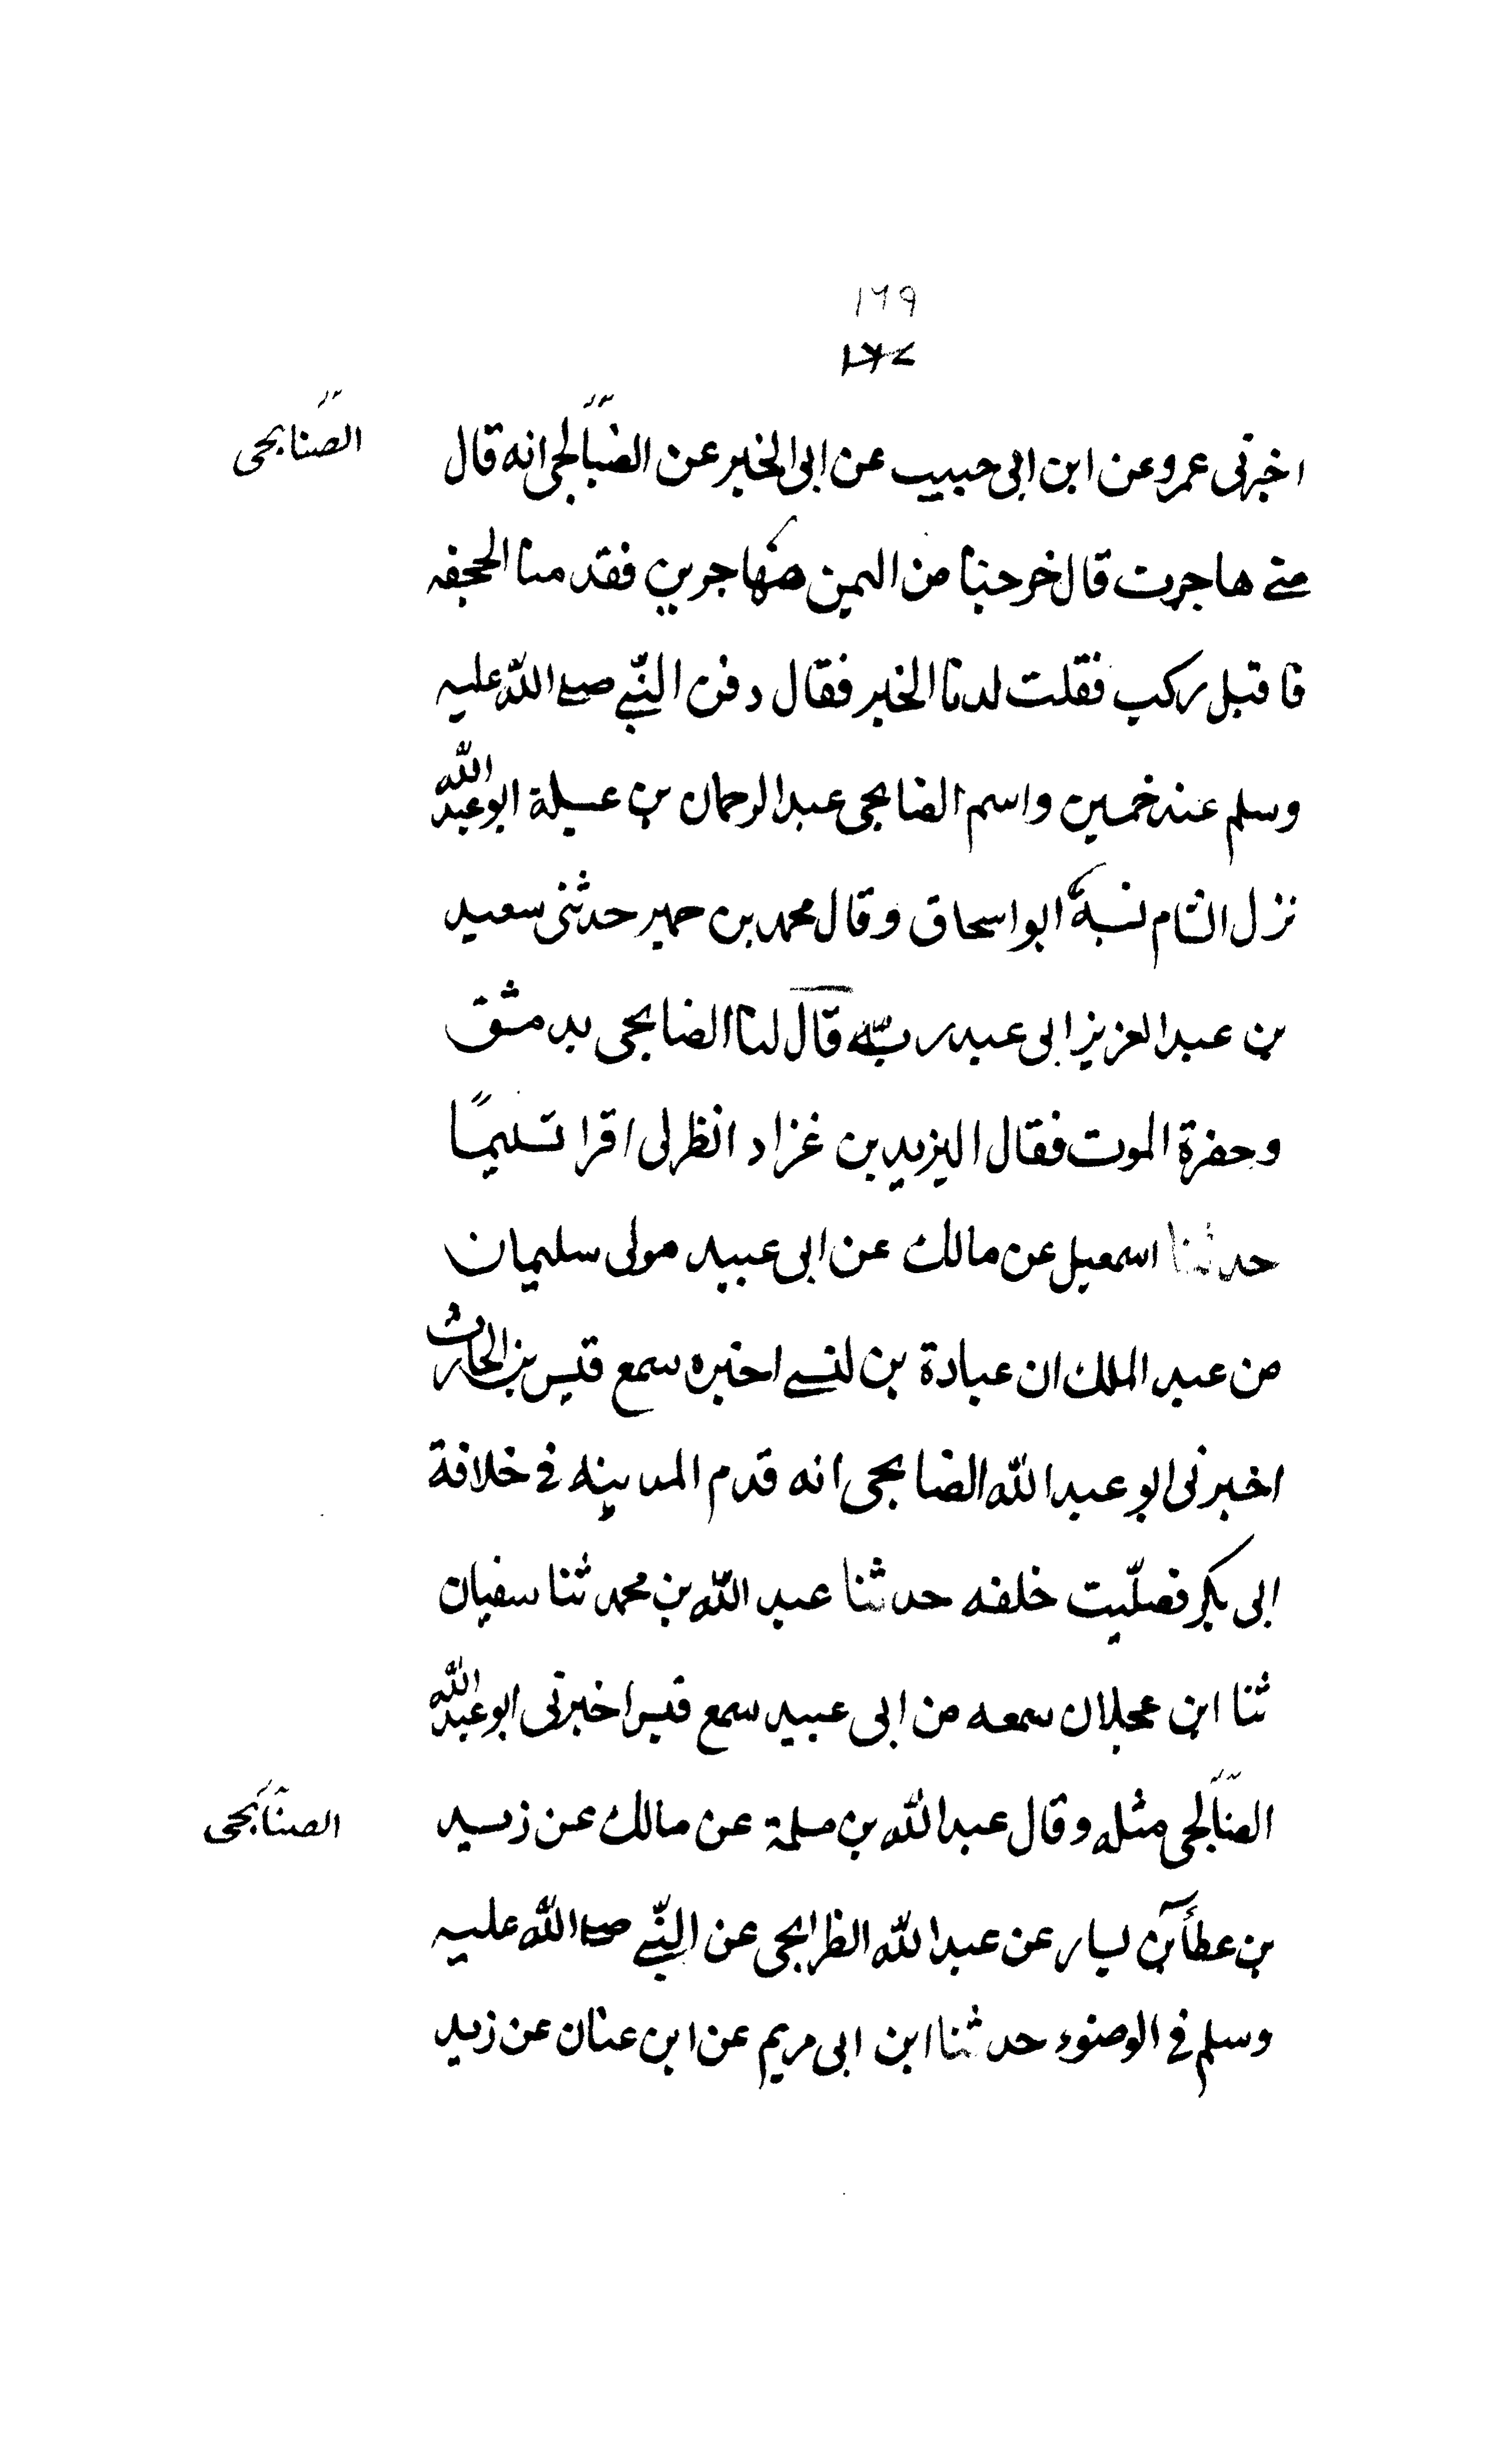 ١٦٩
١٧٢
اخبرنى عمرو عن ابن ابى حبيب عن ابى الخير عن الضبالجى انه قال
الصنابحى
متے هاجرت قال خرحبنا من اليمين مهاجرين فقد منا الحجفه
فاقتبل ركب فقلت لدنا الخبر فقال دفن النبّے صلے اللّٰه عليه
وسلم عند خمسين واسم الضابحى عبد الرحمان بن عسيلة ابو عبد اللّٰه
نزل الشام نسبة ابو اسحاق وقال محمد بن حمير حدثنى سعيد
بن عبد العزيز ابى عبد ربّه قال لنا الضابحى بدمشق
وحفرة الموت فقال اليزيد بن غزاد انظر لى اقرا تسليمًا
حدثنا اسمعيل عن مالك عن ابى عبيد مولى سليمان
من عبد الملك ان عبادة بن لنسے اخبره سمع قيس بن الحارث
اخبرنى ابو عبد اللّٰه الضابحى انه قدم المدينه فى خلافة
ابى بكر فصلّيت خلفه حدثنا عبد اللّٰه بن محمد ثنا سفيان
ثنا ابن عجلان سمعه من ابى عبيد سمع قيسر اخبرنى ابو عبد اللّٰه
الصنالجى مثله وقال عبد اللّٰه بن مسلمة عن مالك عن زسيد
الصنابحى
بن عطأ بن ليسار عن عبد اللّٰه الظرابجى عن النبّے صلے اللّٰه عليه
وسلم فى الوصنوء حدثنا ابن ابى مريم عن ابن عنان عن زيد